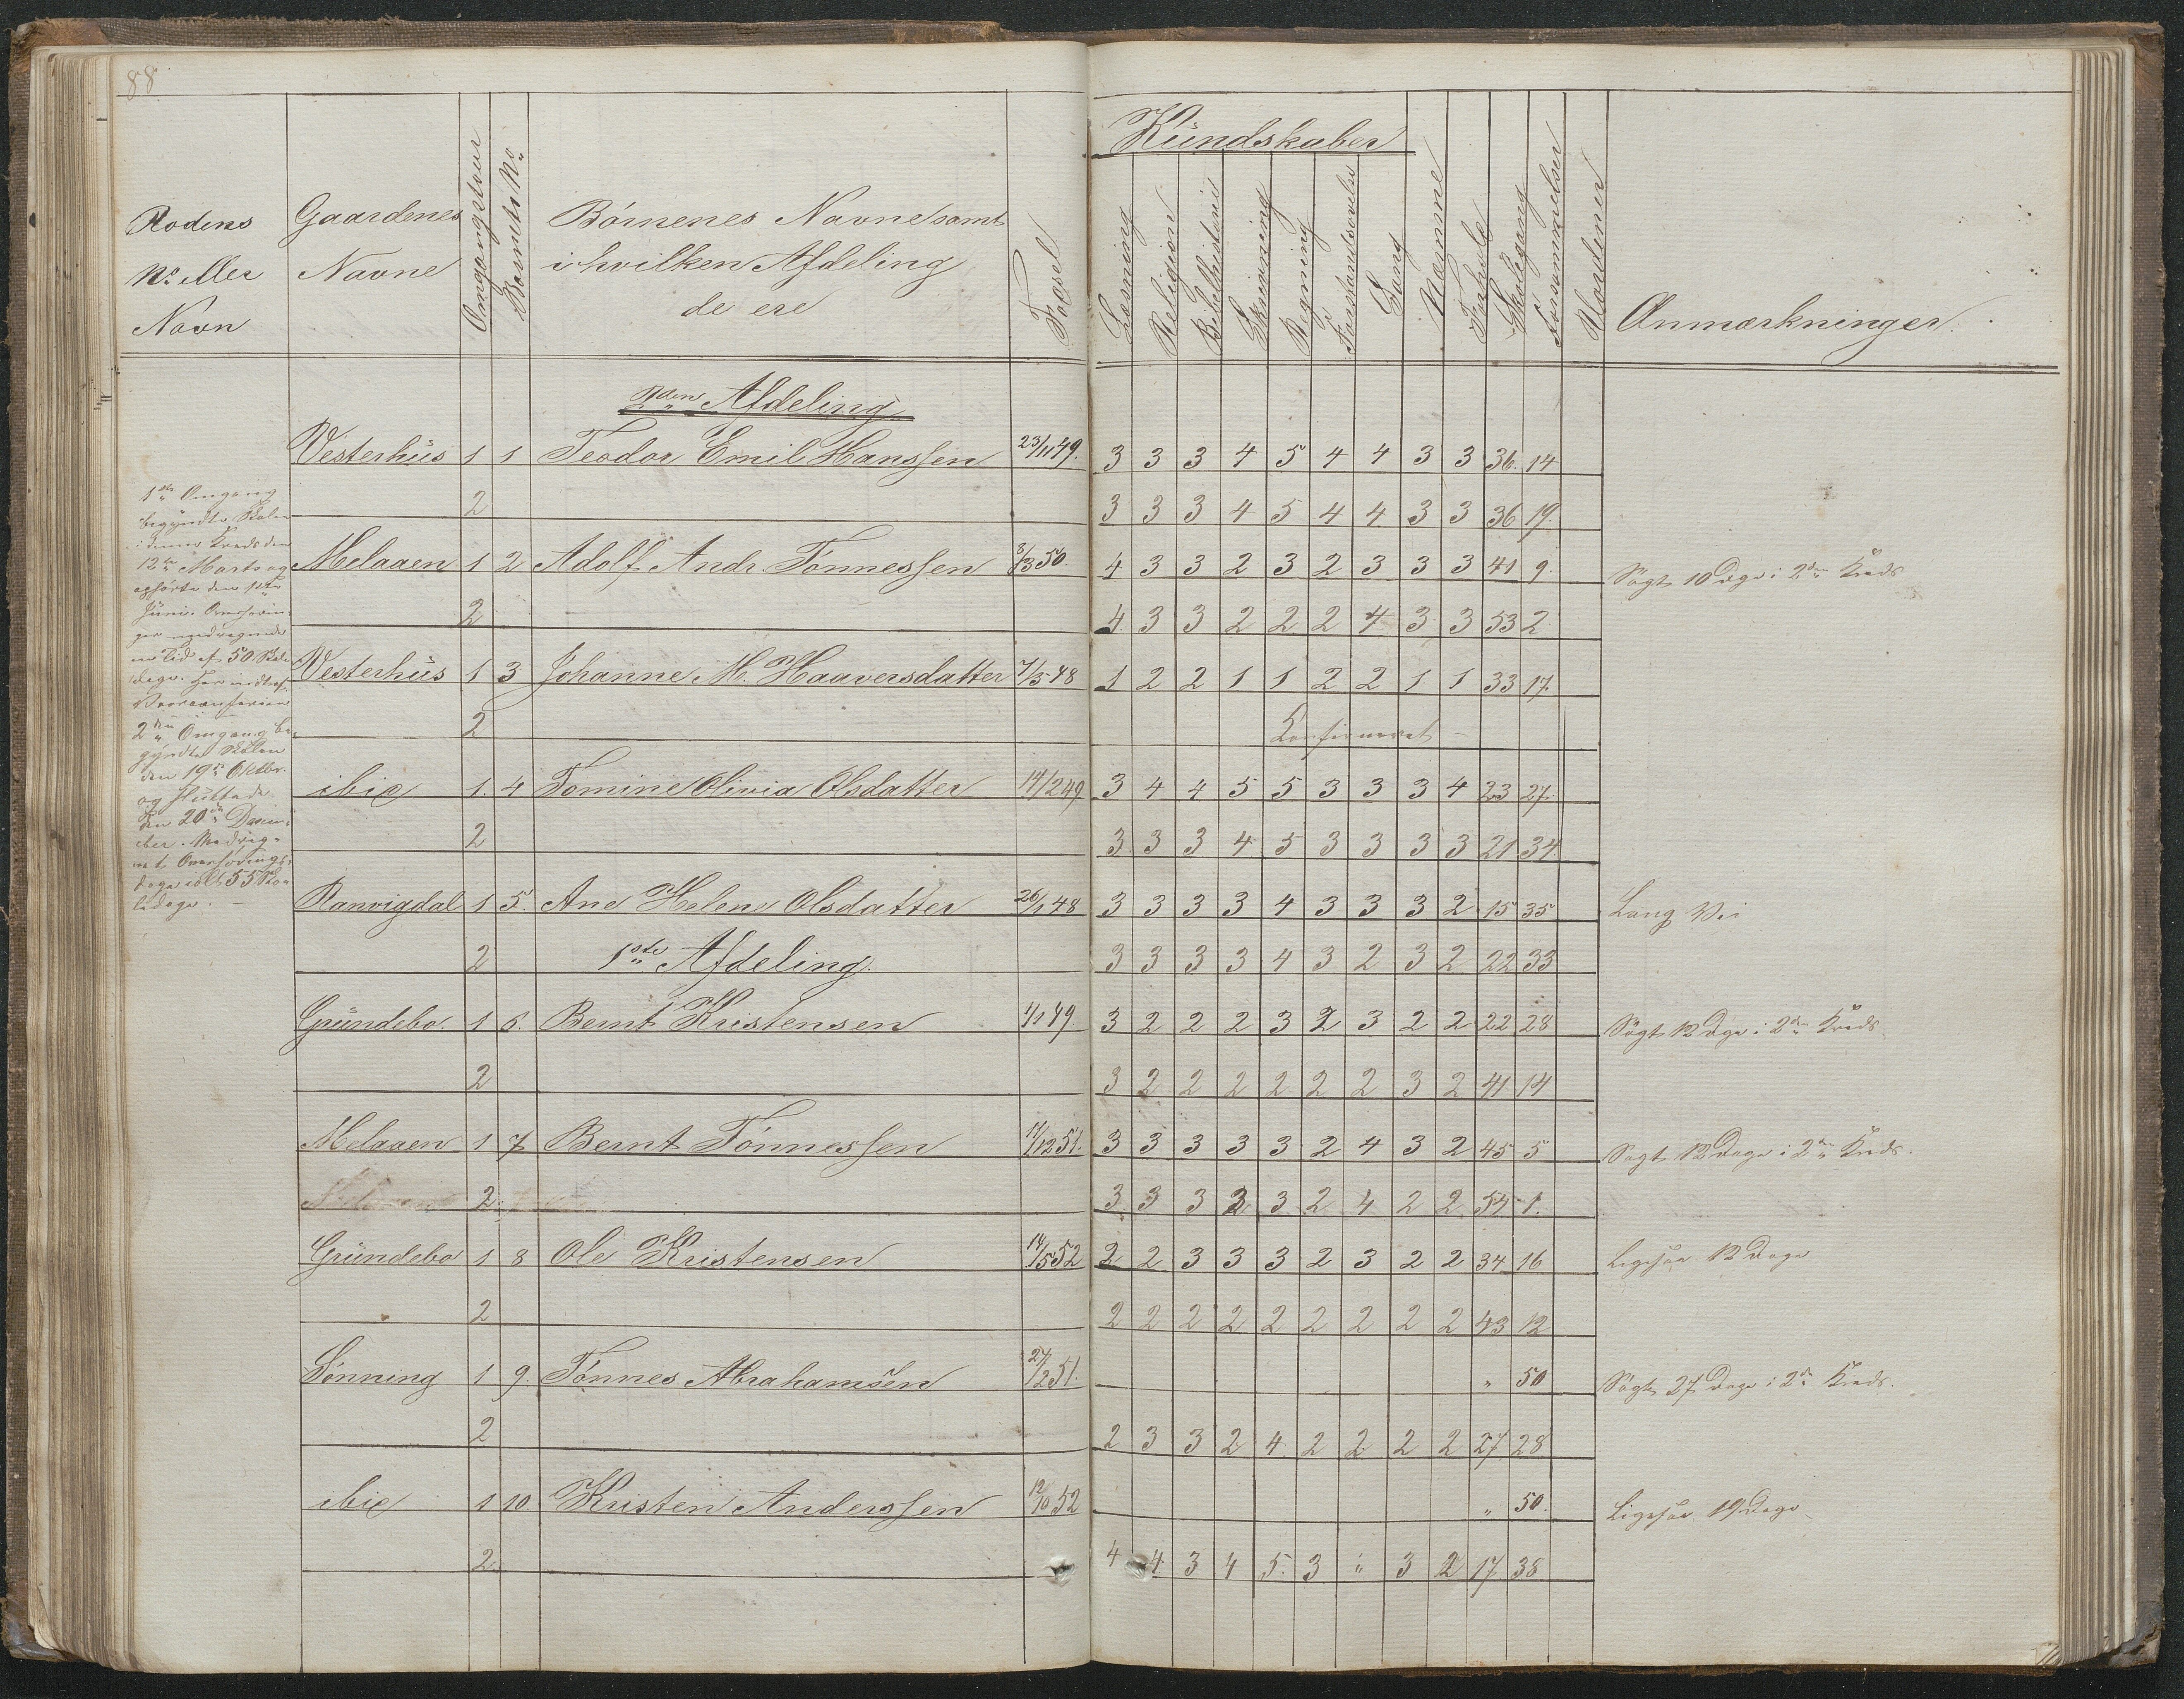 88
Kündskaber
Rodens
No eller
Navn
Gaardenes
Navne
Omgangstour
Barnets No
Børnenes Navne samt
i hvilken Afdeling
de ere
Fødsel
Læsning
Religion
Bibelhistorie
Skrivning
Regning
Forstandsøvelse
Sang
Nemme
Forhold
Skolegang
Forsømmelser
Anmærkninger
2den Afdeling
Vesterhüs 1 1 Teodor Emil Hanssen 23/11 49. 3 3 3 4 5 4 4 3 3 36. 14
2 3 3 3 4 5 4 4 3 3 36 19.
Melaaen 1 2 Adolf Andr. Tönnessen 8/3 50. 4 3 3 2 3 2 3 3 3 41 9. Søgt 10 Dage i 2den Kreds
2 4 3 3 2 2 2 4 3 3 53 2
Vesterhüs 1 3 Johanne M. Haaversdatter 7/5 48 1 2 2 1 1 2 2 1 1 33 17
2 Konfirmeret
ibid 1. 4 Tomine Olivia Olsdatter 14/2 49 3 4 4 5 5 3 3 3 4 23 27
2 3 3 3 4 5 3 3 3 3 21 34
Ranvigdal 1 5. Ane Helene Olsdatter 26/1 48 3 3 3 3 4 3 3 3 2 15 35 Lang Vei
2 1ste Afdeling. 3 3 3 3 4 3 2 3 2 22 33
Gründebo. 1 6. Bernt Kristensen 4/1 49 3 2 2 2 3 2 3 2 2 22 28 Søgt 12 Dage i 2den Kreds
2 3 2 2 2 2 2 2 3 2 41 14
Melaaen 1 7 Bernt Tönnessen 11/12 51. 3 3 3 3 3 2 4 3 2 45 5 Søgt 12 Dage i 2den Kreds.
2 3 3 3 3 3 2 4 2 2 54 1.
Gründebo 1 8 Ole Kristensen 14/5 52 2 2 3 3 3 2 3 2 2 34 16 Ligesaa 12 Dage
2 2 2 2 2 2 2 2 2 2 43 12
Sønning 1 9. Tønnes Abrahamsen 27/2 51. " 50 Søgt 27 Dage i 2den Kreds.
2 2 3 3 2 4 2 2 2 2 27 28
ibid 1 10 Kristen Anderssen 12/10 52 " 50. Ligesaa 19 Dage
2 4 4 3 4 5. 3 " 3 2 17 38
1ste Omgang
begyndte Skolen
i denne Kreds den
12te Marts og
ophørte den 1ste
Juni.
en Tid af 50 Skole
dage.
2den Omgang be-
gyndte Skolen
den 19de Oktbr.
og sluttede
den 20de Decem-
ber. Medreg-
net Overførings-
dage 55 Sko-
ledage.